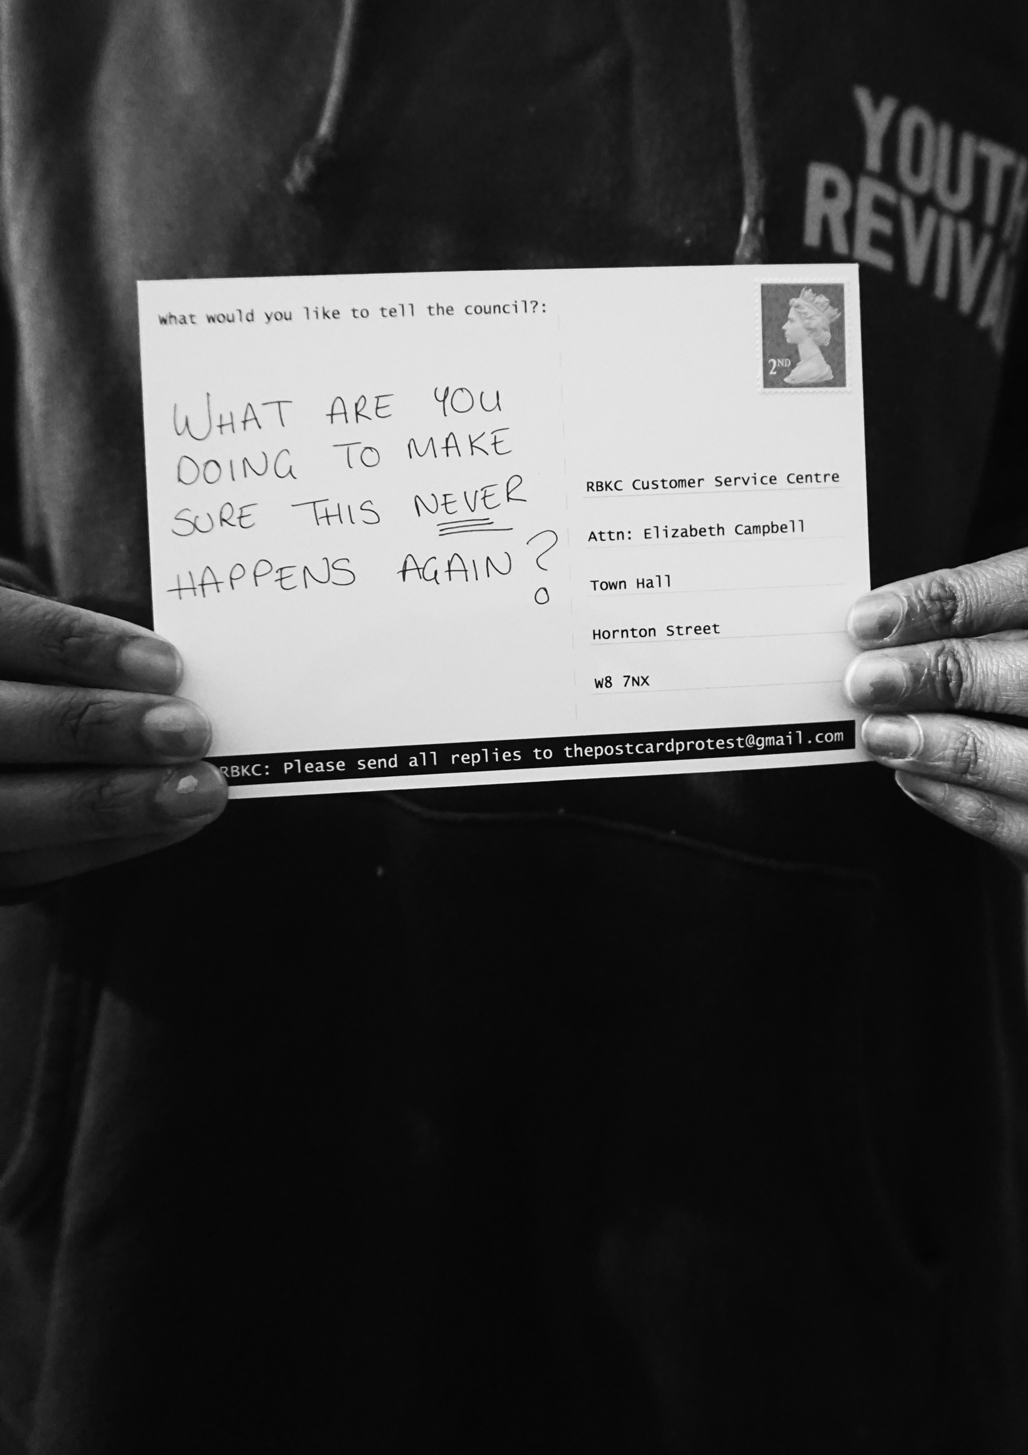 YOUTH
REVIVA
what would you like to tell the council?:
2ND
WHAT ARE YOU
DOING TO MAKE
SURE THIS NEVER
HAPPENS AGAIN?
RBKC Customer Service Centre
Attn: Elizabeth Campbell
Town Hall
Hornton Street
W8 7NX
RBKC: Please send all replies to thepostcardprotest@gmail.com